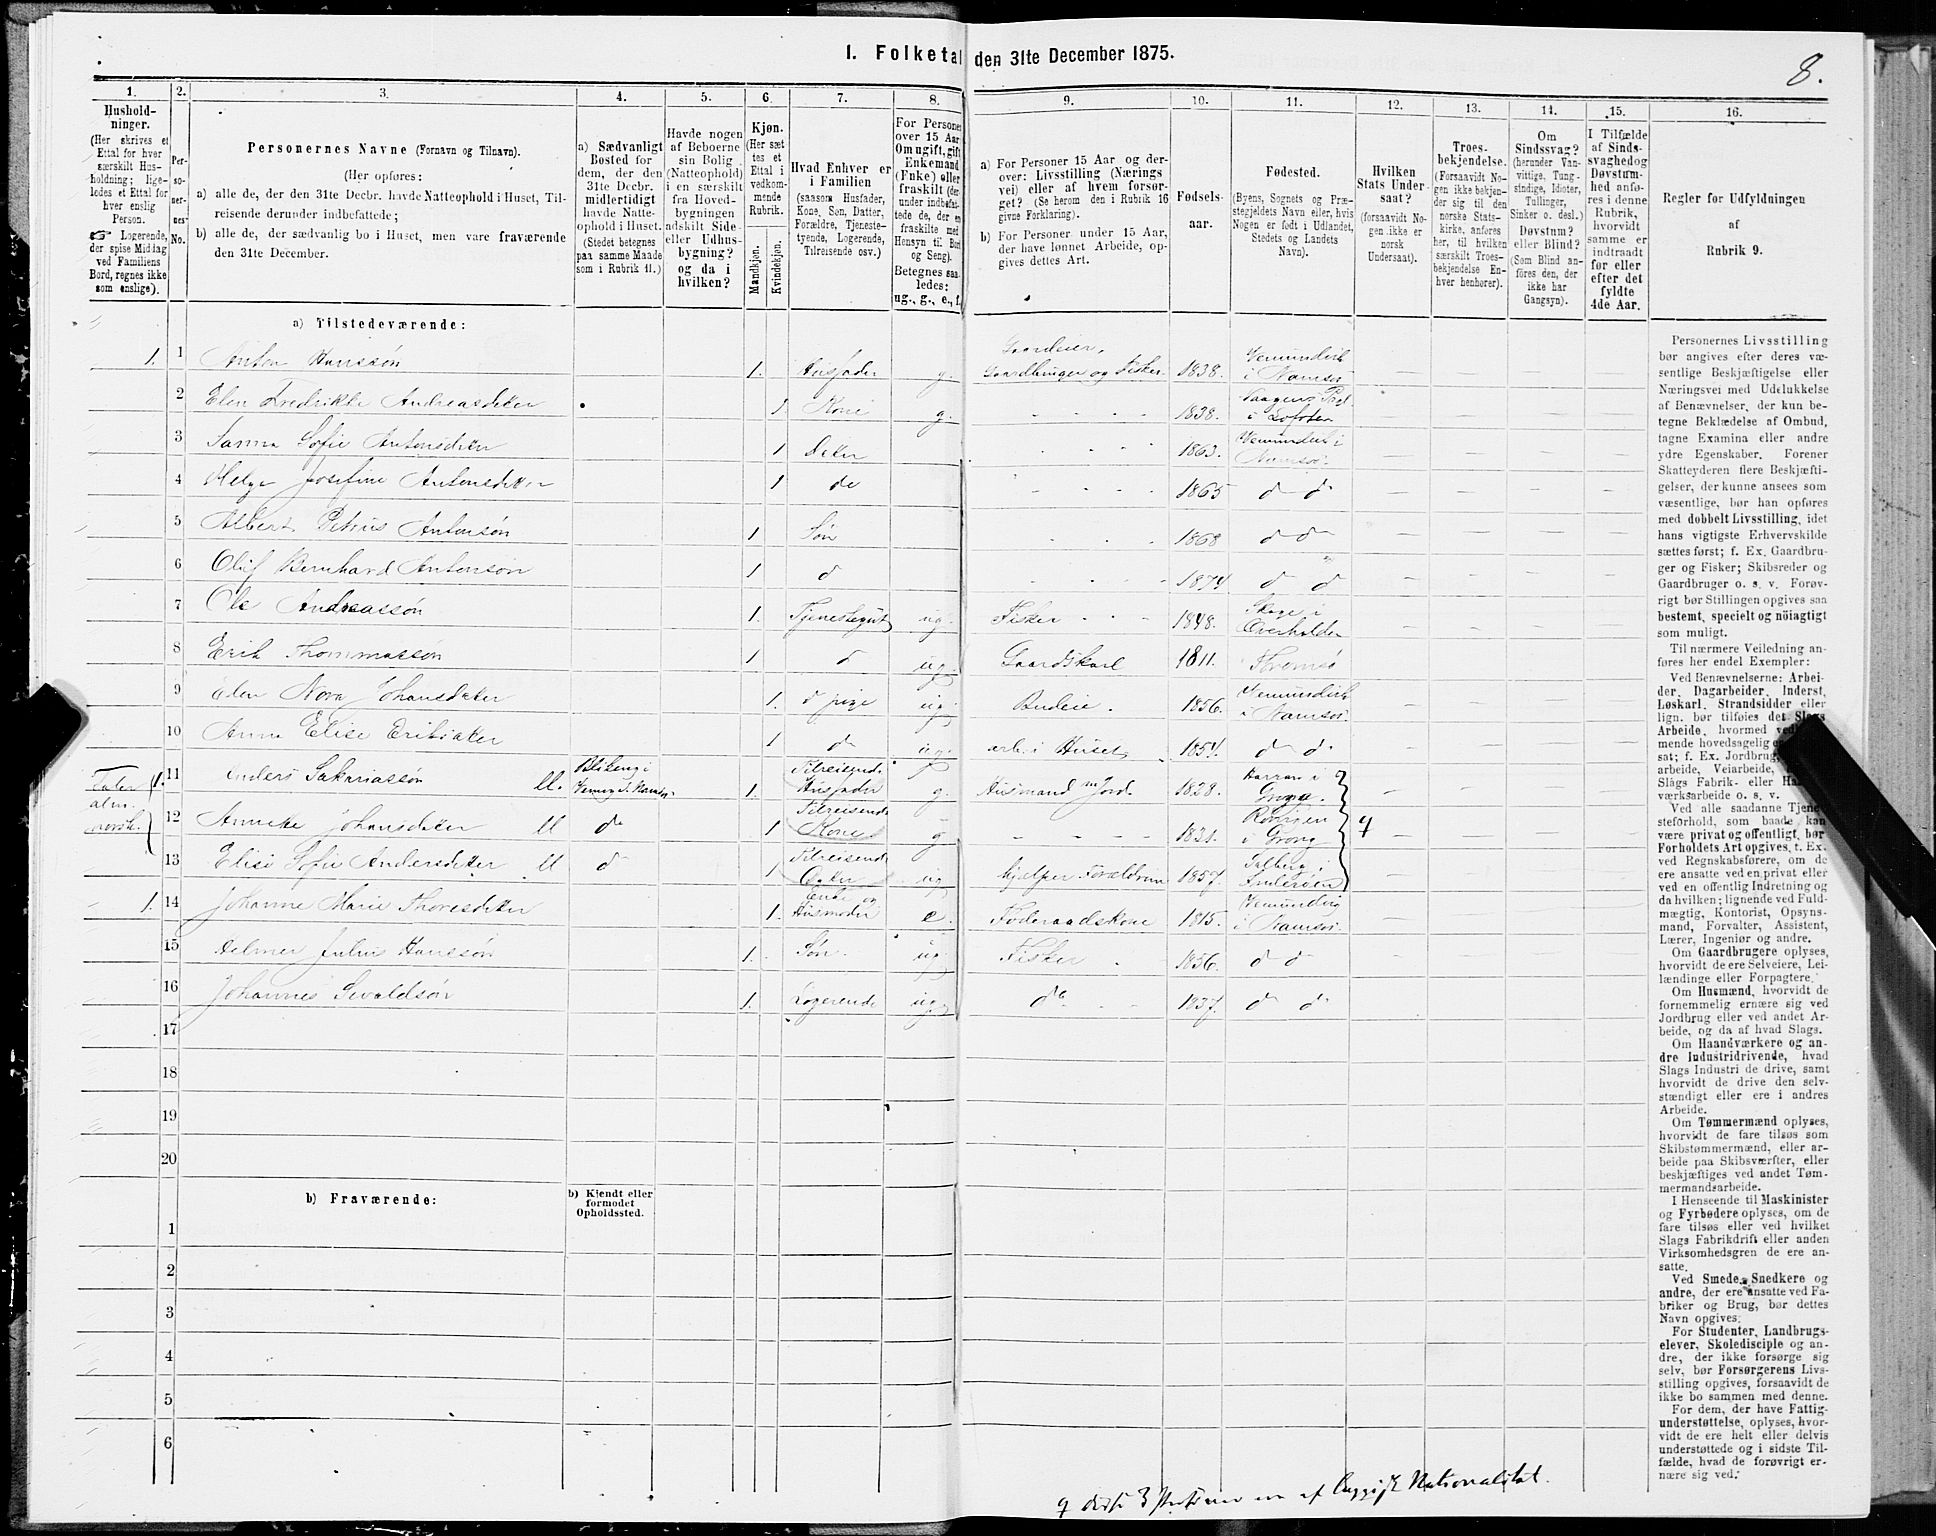 I. Folketal den 31te December 1875.
8.
1.
Hushold-
ninger.
(Her skrives et
Ettal for hver
særskilt Hus-
holdning; lige-
ledes et Ettal for
hver enslig
Person.
☞ Logerende,
der spise Middag
ved Familiens
Bord, regnes ikke
som enslige).
2.
Per-
so-
ner-
nes-
No.
3.
Personernes Navne (Fornavn og Tilnavn).
(Her opføres:
a) alle de, der den 31te Decbr. havde Natteophold i Huset, Til-
reisende derunder indbefattede;
b) alle de, der sædvanlig bo i Huset, men vare fraværende
den 31te December.
4.
a) Sædvanligt
Bosted for
dem, der den
31te Decbr.
midlertidigt
havde Natte-
ophold i Huset.
(Stedet betegnes
paa samme Maade
som i Rubrik 11.)
5.
Havde nogen
af Beboerne
sin Bolig
(Natteophold)
i en særskilt
fra Hoved-
bygningen
adskilt Side-
eller Udhus-
bygning?
og da i
hvilken?
6.
Kjøn.
(Her sæt
tes et
Ettal i
vedkom-
mende
Rubrik.
Mandkjøn.
Kvindekjøn.
7.
Hvad Enhver er
i Familien
(saasom Husfader,
Kone, Søn, Datter,
Forældre, Tjeneste-
tyende, Logerende,
Tilreisende osv.)
8.
For Personer
over 15 Aar:
Om ugift, gift
Enkemand
(Enke) eller
fraskilt (der-
under indbefat-
tede de, der er
fraskilte med
Hensyn til Bord
og Seng).
Betegnes saa-
ledes:
ug., g., e., f.
9.
a) For Personer 15 Aar og der-
over: Livsstilling (Nærings
vei) eller af hvem forsør-
get? (Se herom den i Rubrik 16
givne Forklaring).
b) For Personer under 15 Aar,
der have lønnet Arbeide, op-
gives dettes Art.
10.
Fødsels-
aar.
11.
Fødested.
(Byens, Sognets og Præ-
stegjeldets Navn eller, hvis
Nogen er født i Udlandet,
Stedets og Landets
Navn).
12.
Hvilken
Stats Under-
saat?
(forsaavidt No-
gen ikke er
norsk
Undersaat).
13.
Troes-
bekjendelse.
(Forsaavidt No-
gen ikke bekjen-
der sig til den
norske Stats-
kirke, anføres
her, til hvilken
særskilt Troes-
bekjendelse En-
hver henhører).
14.
Om
Sindssvag?
(herunder Van-
vittige, Tung-
sindige, Idioter,
Tullinger,
Sinker o. desl.)
Døvstum?
eller Blind?
(Som Blind an-
føres den, der
ikke har
Gangsyn).
15.
I Tilfælde
af Sinds-
svaghed og
Døvstum-
hed anfø-
res i denne
Rubrik,
hvorvidt
samme er
indtraadt
før eller
efter det
fyldte
4de Aar.
16.
Regler for Udfyldningen
af
Rubrik 9.
a) Tilstedeværende:
1. 1 Anton Hanssøn 1. Husfader g. Gaardeier, Gaardbruger og Fisker. 1838. Vemundvik i Namsos —
2 Elen Fredrikke Andreasdatter 1 Kone g. 1838. Vaagens Pgl. i Lofoten —
3 Sanna Sofie Antonsdatter 1 Datter 1863. Vemundvik i Namsos. —
4 Helga Josefine Antonsdatter 1 do 1865 do do —
5 Albert Petrus Antonsøn 1 Søn 1868 do do —
6 Oluf Bernhard Antonsøn 1 do 1874 do do —
7 Ole Andreassøn 1. Tjenestegut ug. Fisker 1848. Skage i Overhalden —
8 Erik Thommassøn 1. do ug. Gaardskarl 1811. Tromsø —
9 Elen Nora Johansdatter 1. do pige ug. Budeie. 1856. Vemundvik i Namsos. —
10 Anna Elise Eriksdatter 1 do ug. arb. i Huset 1854. do do —
Taler alm. norsk 1. 11 Anders Sakariassøn M. i Vemundv. Namsos 1. Tilreisende Husfader g. Husmand m Jord. 1828. Harran i Grong. —
12 Anneke Johansdatter M do 1 Tilreisende Kone g 1821. Rørvigen i Grong 9 —
13 Elise Sofie Andersdatter M do 1 Tilreisende Datter ug. hjelper Forældrene 1857. i Inderøen —
1. 14 Johanne Marie Thoresdatter 1. Enke og Husmoder e. Føderaadskone 1815. Vemundvig i Namsos. —
15 Helmer Julius Hanssøn 1. Søn. ug. Fisker 1856. do do —
16 Johannes Sivaldsøn 1. Logerende ug. do 1837. do do —
17
18
19
20
b) Fraværende:
b) Kjendt eller
formodet
Opholdssted.
1
2
3
4
5
6
Personernes Livsstilling
bør angives efter deres væ-
sentlige Beskjæftigelse eller
Næringsvei med Udelukkelse
af Benævnelser, der kun be-
tegne Beklædelse af Ombud,
tagne Examina eller andre
ydre Egenskaber. Forener
Skatteyderen flere Beskjæfti-
gelser, der kunne ansees som
væsentlige, bør han opføres
med dobbelt Livsstilling, idet
hans vigtigste Erhvervskilde
sættes først; f. Ex. Gaardbru-
ger og Fisker; Skibsreder og
Gaardbruger o. s. v. Forøv-
rigt bør Stillingen opgives saa
bestemt, specielt og nöiagtigt
som muligt.
Til nærmere Veiledning an-
føres her endel Exempler:
Ved Benævnelserne: Arbei-
der, Dagarbeider, Inderst,
Løskarl, Strandsidder eller
lign. bør tilføies det Slags
Arbeide, hvormed ved
mende hovedsagelig e
sat; f. Ex. Jordbrug,
arbeide, Veiarbeide,
Slags Fabrik- eller Ha
værksarbeide o. s. v.
Ved alle saadanne Tjene
steforhold, som baade kan
være privat og offentligt, bør
Forholdets Art opgives, t. Ex.
ved Regnskabsførere, om de
ere ansatte ved en privat eller
ved en offentlig Indretning og
da hvilken; lignende ved Fuld-
mægtig, Kontorist, Opsyns-
mand, Forvalter, Assistent,
Lærer, Ingeniør og andre.
Om Gaardbrugere oplyses,
hvorvidt de ere Selveiere, Lei-
lændinge eller Forpagtere.
Om Husmænd, hvorvidt de
fornemmelig ernære sig ved
Jordbrug eller ved andet Ar-
beide, og da af hvad Slags.
Om Haandværkere og an-
dre Industridrivende, hvad
Slags Industri de drive, samt
hvorvidt de drive den selv-
stændigt eller ere i andres
Arbeide.
Om Tømmermænd oplyses,
hvorvidt de fare tilsøs som
Skibstømmermænd, eller ar-
beide paa Skibsværfter, eller
beskjæftiges ved andet Tøm-
mermandsarbeide.
I Henseende til Maskinister
og Fyrbødere oplyses, om de
fare tilsøs eller ved hvilket
Slags Fabrikdrift eller anden
Virksomhedsgren de ere an-
satte.
Ved Smede, Snedkere og
andre, der ere ansatte ved Fa-
briker og Brug, bør dettes
Navn opgives.
For Studenter, Landbrugs-
elever, Skoledisciple og an-
dre, der ikke forsørge sig
selv, bør Forsørgerens Livs-
stilling opgives, forsaavidt de
ikke bo sammen med denne.
For dem, der have Fattig-
understøttelse, oplyses, hvor-
vidt de ere helt eller delvis
understøttede og i sidste Til-
fælde, hvad de forøvrigt er-
nære sig ved.
9 disse 3 Personer ere af Nationalitet.